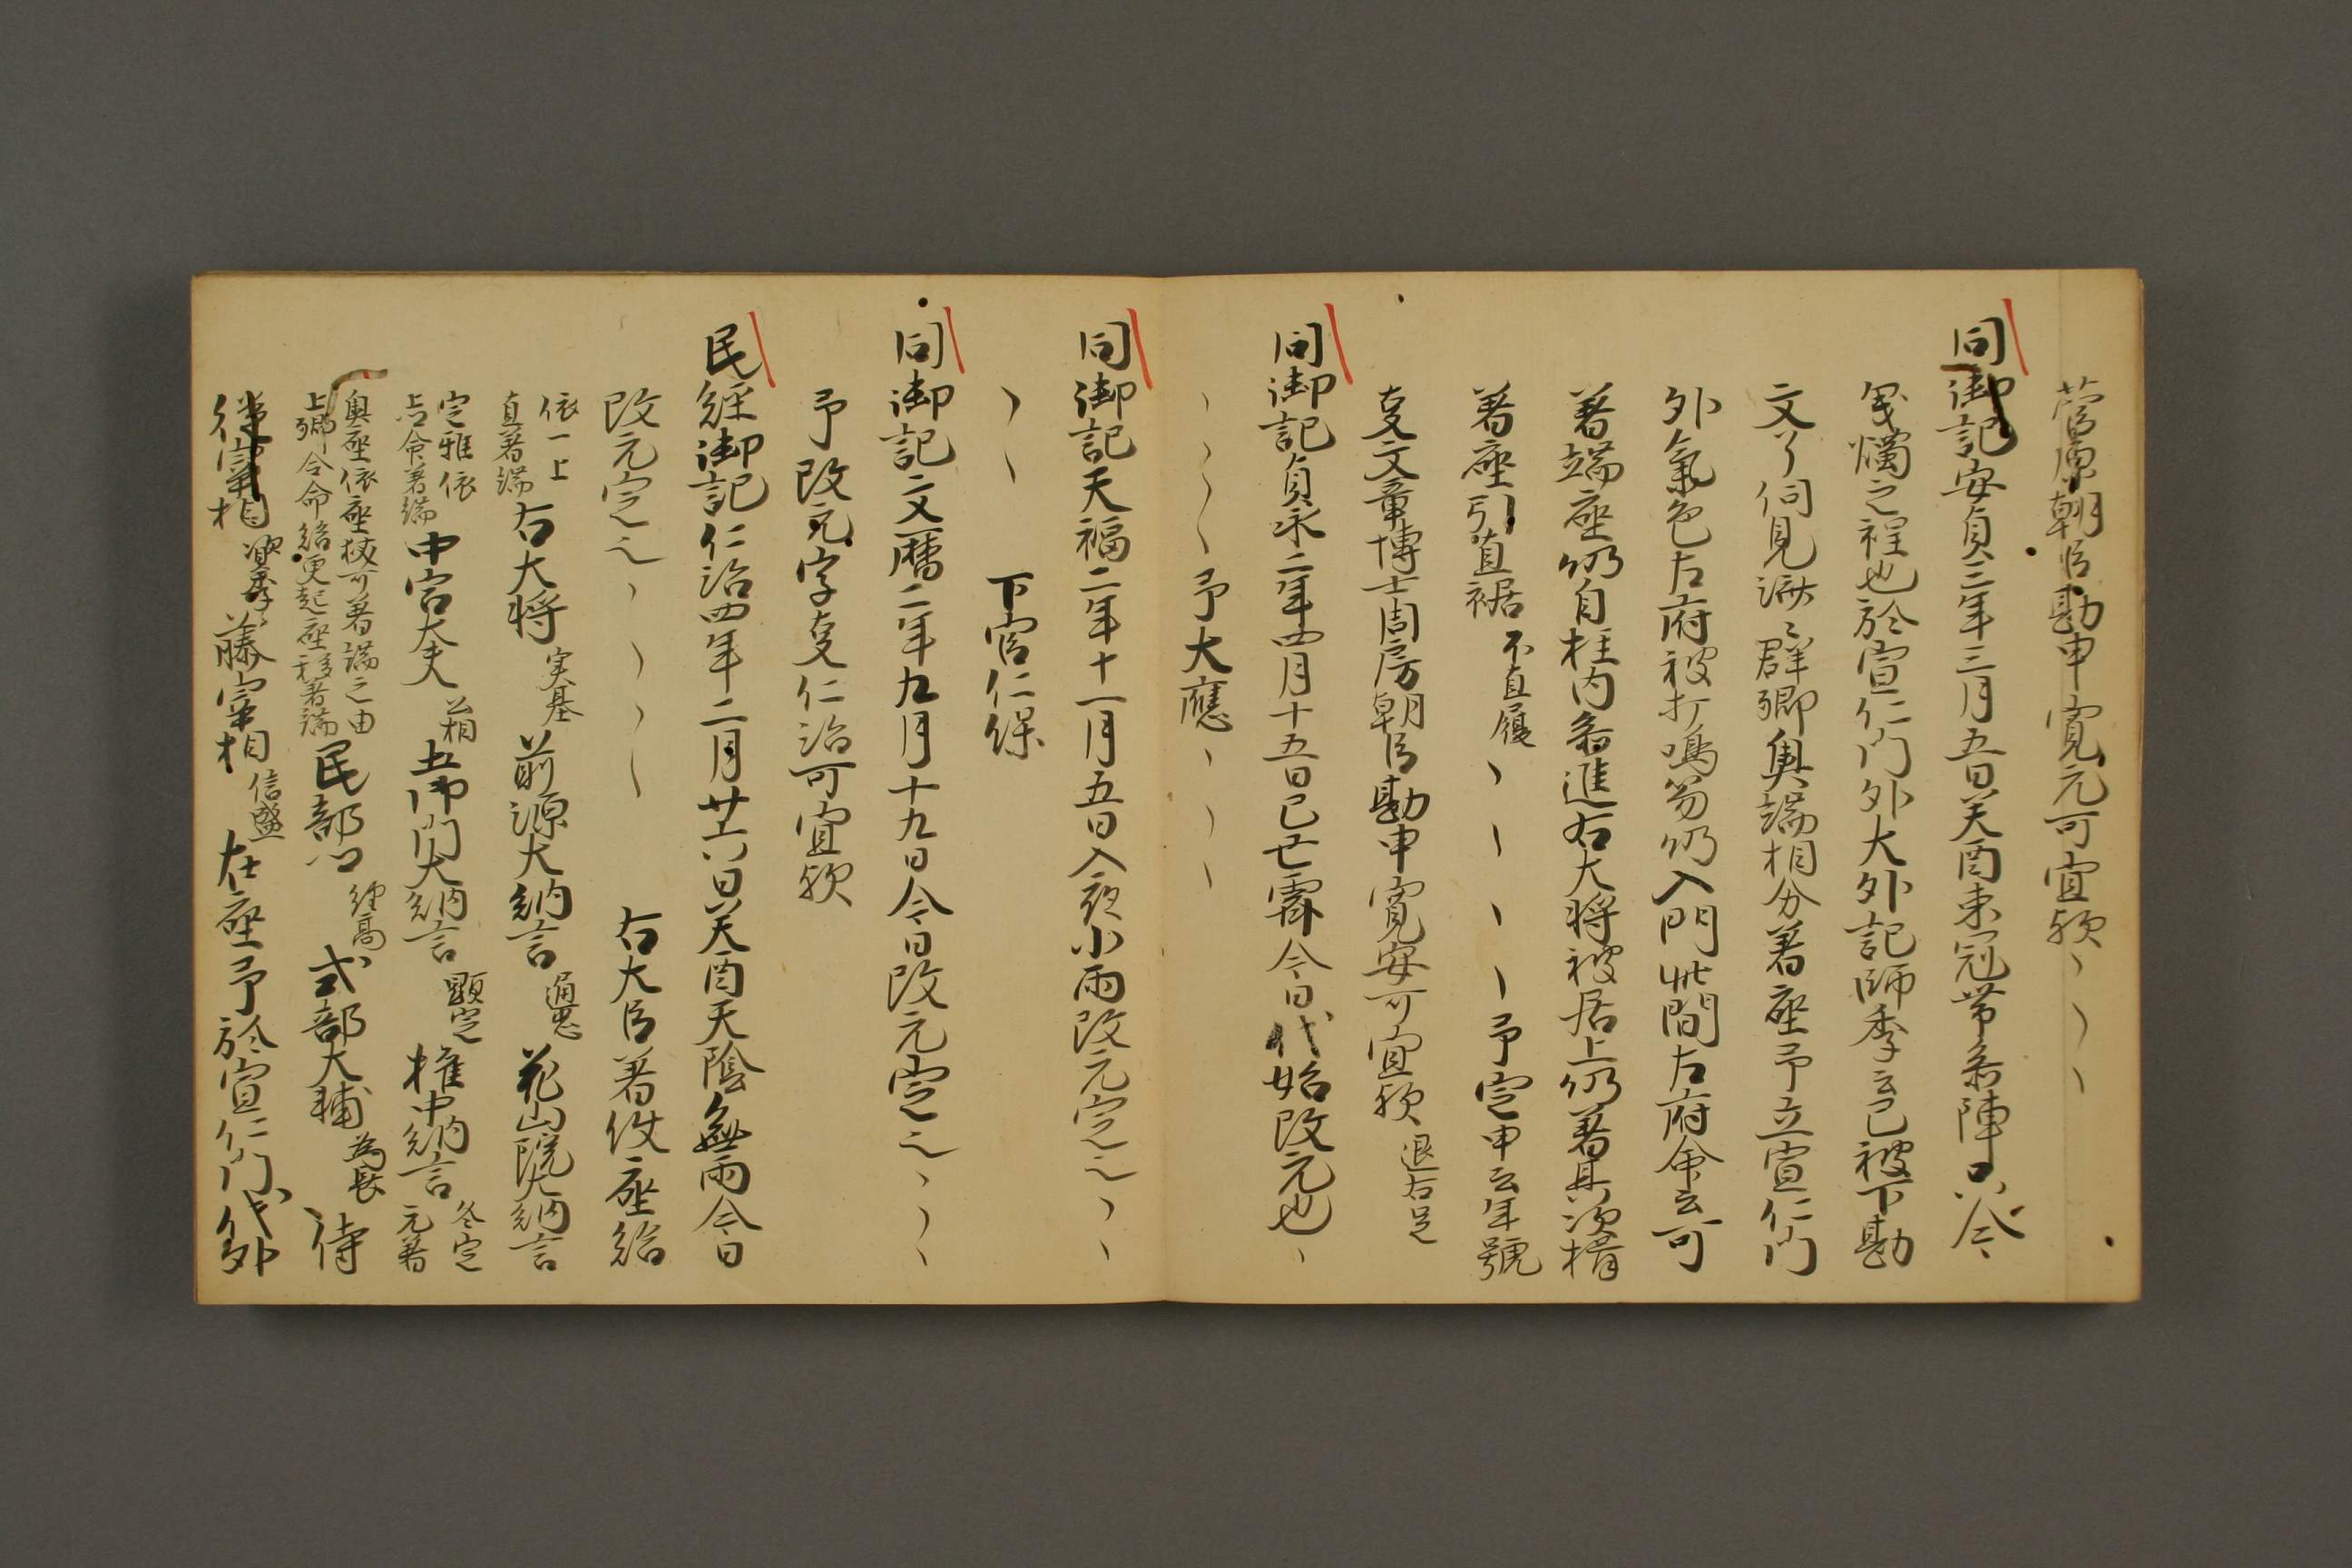 菅原朝臣勘申寛元可宜歟、、、
同御記安貞三年三月五日癸酉束冠帯参陣日公卿
秉燭之程也於宣仁門外大外記師季云已被下勘
文了伺見漸々群卿奥端相分着座予立宣仁門
外氣色左府被打鳴笏仍入門此間左府命云可
着端座仍自柱内参進右大将被居上仍着其次揖
着座引直裾不直履、、、、予定申云年號
事文章博士周房朝臣勘申寛安可宜歟退右足
同御記貞永二年四月十五日己亡霽今日代始改元也、
、、、、予大應、、、
同御記天福二年十一月五日入夜小雨改元定云々、、
、、下官仁保
同御記文暦二年九月十九日今日改元定云々、、、
予改元字事仁治可宜歟
民経御記仁治四年二月廿六日癸酉天陰無雨今日
改元定云々、、、、右大臣着仗座給
依一上直着端右大将実基前源大納言通忠花山院大納言
定雅依上命着端中宮大夫 土御門大納言顕定権中納言冬定元着
奥座依座狭可着端之由上卿令命給更起座移着端民部卿経高式部大輔為長侍
従宰相 藤宰相信盛在座予於宣仁門代外